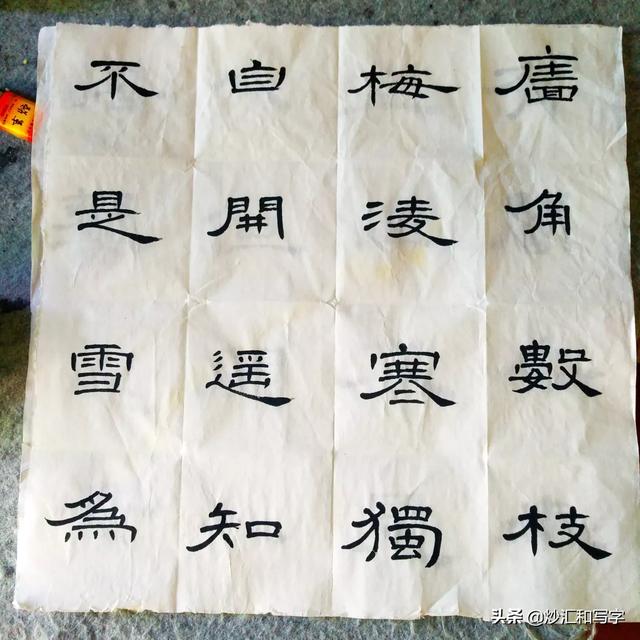 廧角數枝
梅淩寒獨
自開遥知
不是雪為
头条 @炒汇和写字